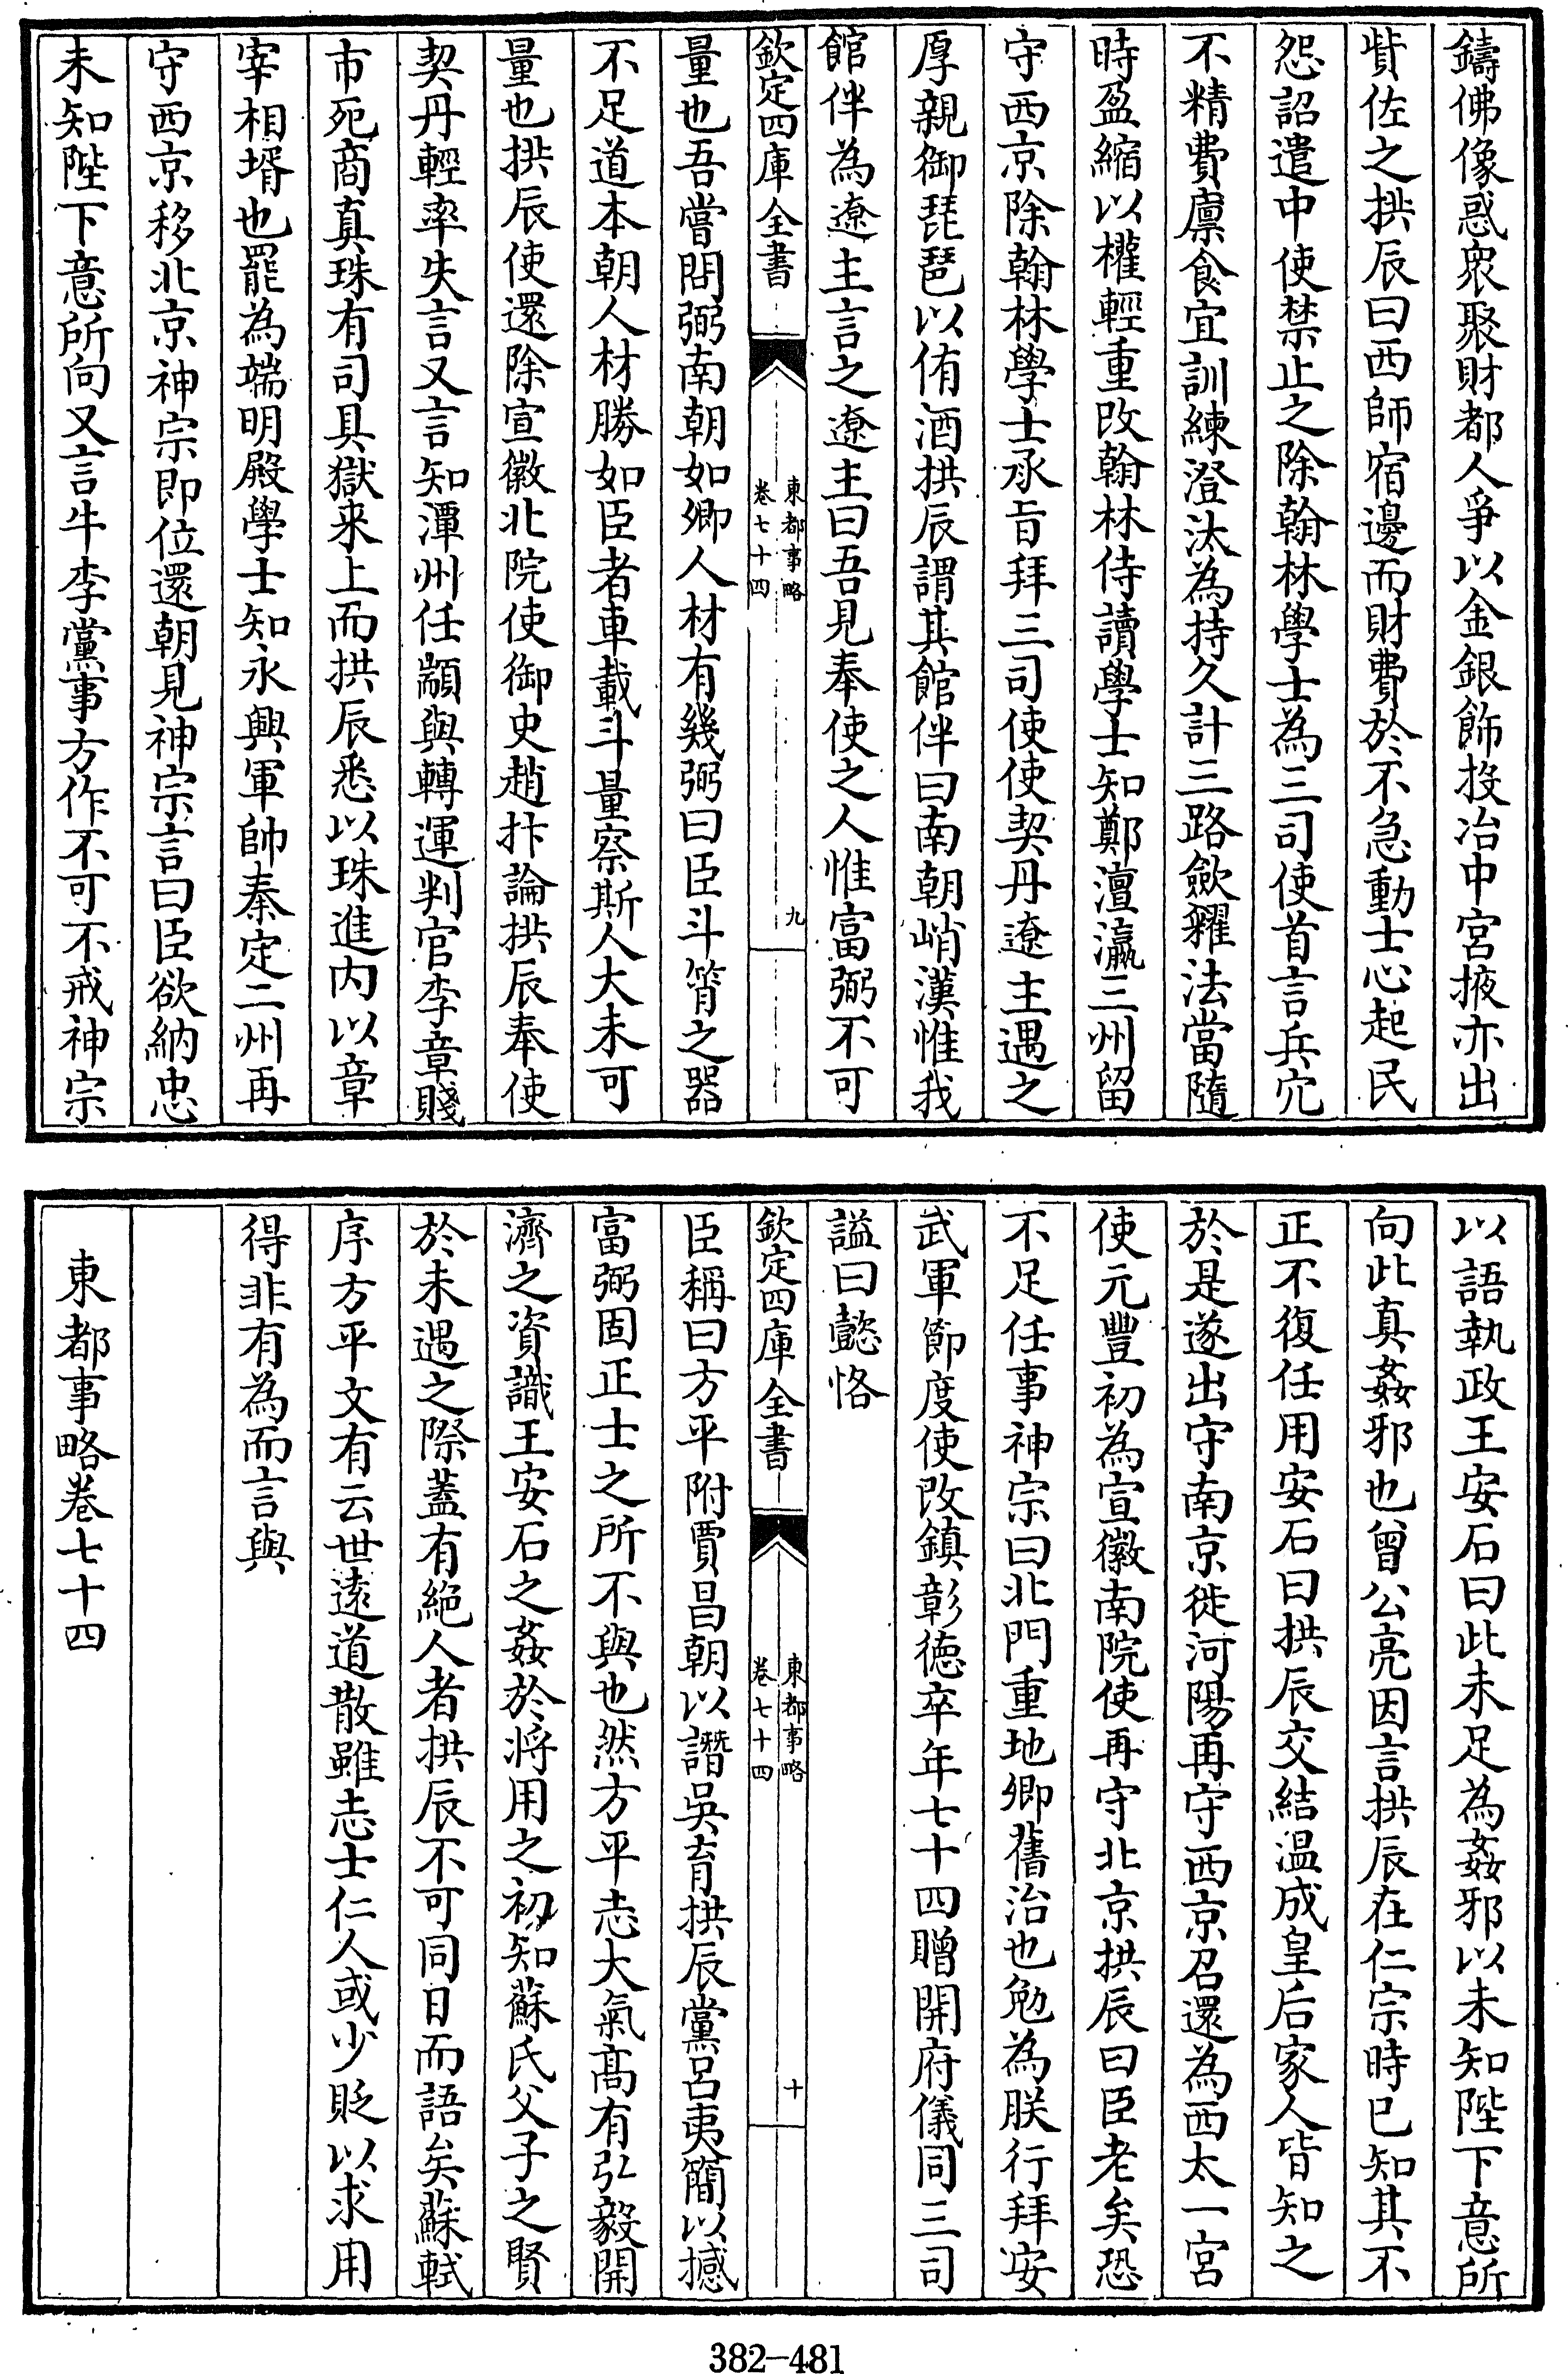 鑄佛像惑衆聚財都人爭以金銀飾投冶中宫掖亦出
貲佐之拱辰曰西師宿邊而財費於不急動士心起民
怨詔遣中使禁止之除翰林學士為三司使首言兵冗
不精費廪食宜訓練澄汰為持久計三路斂糴法當隨
時盈縮以權輕重改翰林侍讀學士知鄭澶瀛三州留
守西京除翰林學士承旨拜三司使使契丹遼主遇之
厚親御琵琶以侑酒拱辰謂其館伴曰南朝峭漢惟我
館伴為遼主言之遼主曰吾見奉使之人惟富弼不可
欽定四庫全書
東都事略
卷七十四
九
量也吾嘗問弼南朝如卿人材有幾弼曰臣斗筲之器
不足道本朝人材勝如臣者車載斗量察斯人大未可
量也拱辰使還除宣徽北院使御史趙抃論拱辰奉使
契丹輕率失言又言知潭州任顓與轉運判官李章賤
市死商真珠有司具獄来上而拱辰悉以珠進内以章
宰相壻也罷為端明殿學士知永興軍帥秦定二州再
守西京移北京神宗即位還朝見神宗言曰臣欲納忠
未知陛下意所向又言牛李黨事方作不可不戒神宗
以語執政王安石曰此未足為姦邪以未知陛下意所
向此真姦邪也曾公亮因言拱辰在仁宗時已知其不
正不復任用安石曰拱辰交結温成皇后家人皆知之
於是遂出守南京徙河陽再守西京召還為西太一宫
使元豐初為宣徽南院使再守北京拱辰曰臣老矣恐
不足任事神宗曰北門重地卿舊治也勉為朕行拜安
武軍節度使改鎮彰徳卒年七十四贈開府儀同三司
諡曰懿恪
欽定四庫全書
東都事略
卷七十四
十
臣稱曰方平附賈昌朝以譖吳育拱辰黨呂夷簡以撼
富弼固正士之所不與也然方平志大氣髙有弘毅開
濟之資識王安石之姦於將用之初知蘇氏父子之賢
於未遇之際蓋有絶人者拱辰不可同日而語矣蘇軾
序方平文有云世逺道散雖志士仁人或少貶以求用
得非有為而言與
東都事略卷七十四
382-481